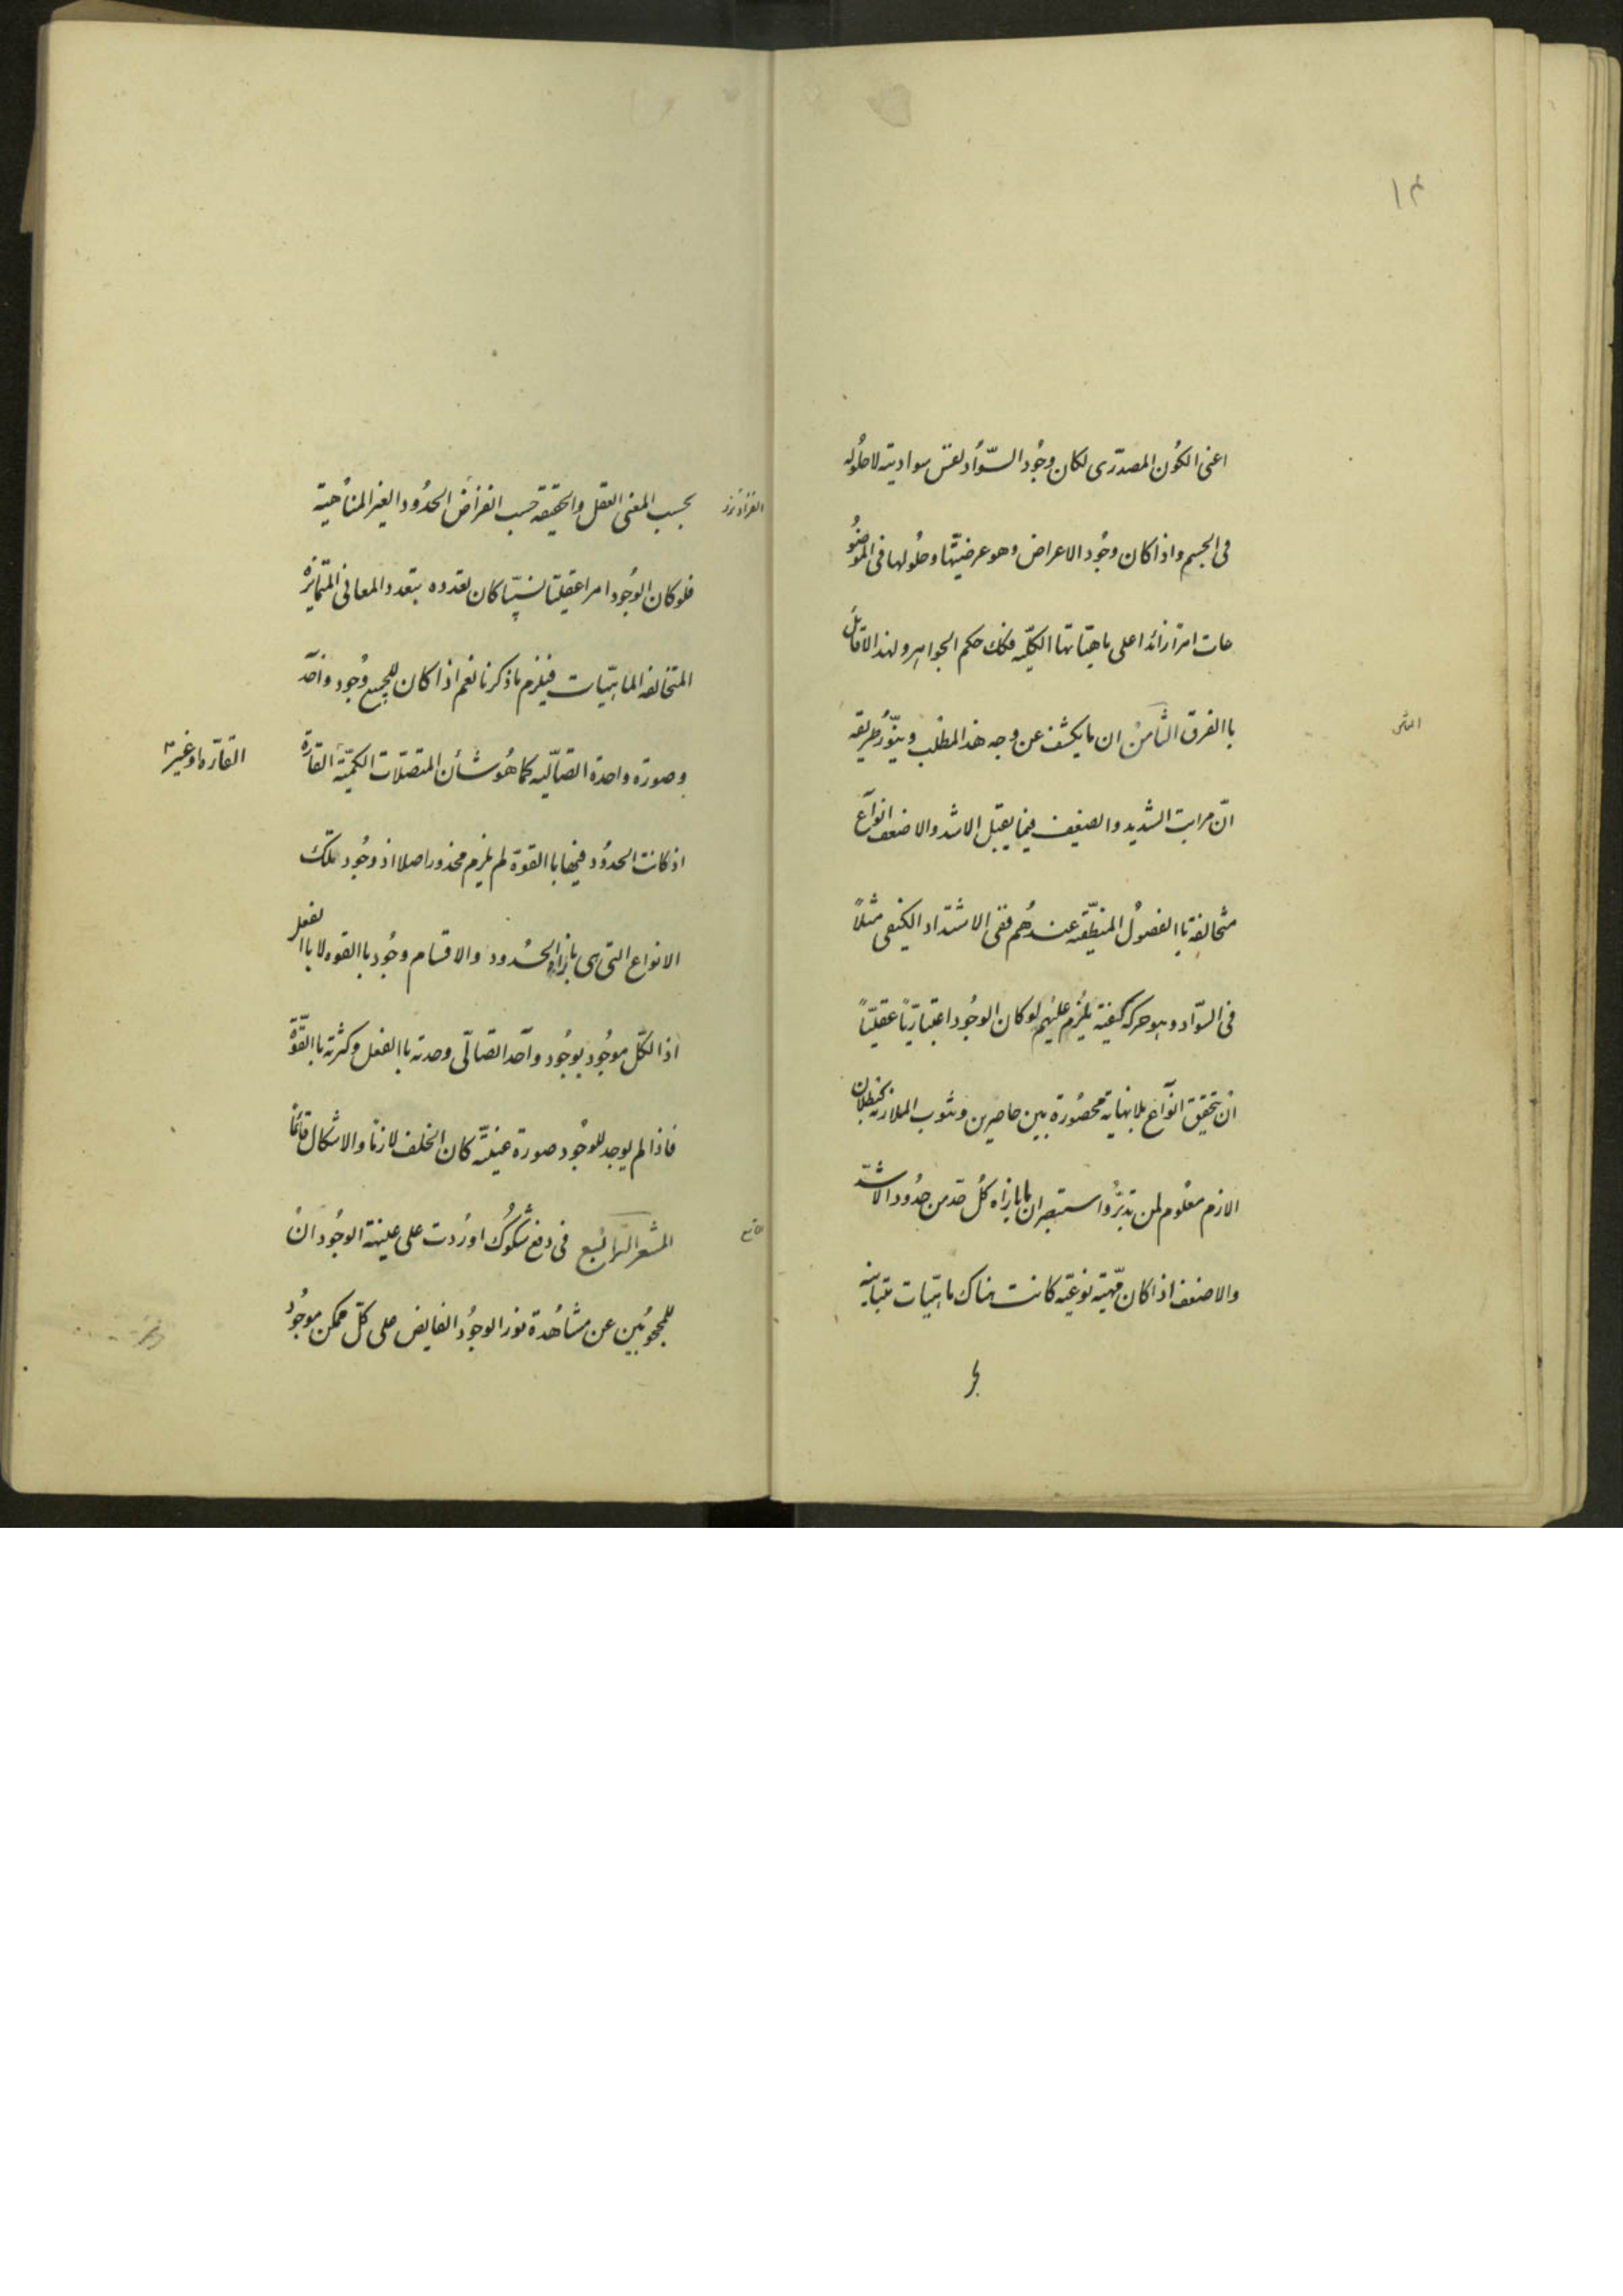 ١٤
اعنی الکون المصدری لکان وجود السّواد نفس سوادیته لا حلوله
فی الجسم واذا کان وجود الاعراض وهو عرضیّتها وحلولها فی الموضو
عات امرا زائدا علی ماهیّاتها الکلیّه فکك حکم الجواهر ولهذا لا قائل
باالفرق الثامن ان ما یکشف عن وجه هذا المطلب وینّور طریقه
الثامن
انّ مراتب الشدید والضعیف فیما یقبل الاشد والاضعف انواع
متخالفة باالفصول المنطقیّه عندهم ففی الاشتداد الکیفی مثلاً
فی السّواد وهو حرکه کیفیّة یلزم علیهم لو کان الوجود اعتباریّاً عقلیّاً
ان یتحقق انواع بلا نهایة محصورة بین حاصرین وثبوت الملازمه کبطلان
الازم معلوم لمن تدبّر واستبصر ان بازاء کل حد من حدود الاشدّ
والاضعف اذا کان مّهیّة نوعیّه کانت هناك ماهیّات متباینه
بحسب المعنی العقل والحقیقه حسب انفراض الحدود الغیر المتناهیة
فلو کان الوجود امرا عقلیّا نسبیّا کان تعدده بتعدد المعانی المتمایزة
المتخالفه الماهیّات فیلزم ما ذکرنا نعم اذا کان للجمیع وجود واحد
وصوره واحدة اتصالّیه کما هو شأن المتصلات الکمیّة القارّة
القارّه او غیر
اذ کانت الحدود فیها باالقوة لم یلزم محذور اصلا اذ وجود تلك
الانواع التی هی بازاء الحدود والاقسام وجود باالقوه لا باالفعل
اذ الکل موجود بوجود واحد اتصالّی وحدته باالفعل وکثرته باالقوّة
فاذا لم یوجد للوجود صورة عینیّه کان الخلف لازما والاشکال قائما
المشعر الرابع فی دفع شکوك اوردت علی عینیة الوجود ان
للمحجوبین عن مشاهدة نور الوجود الفایض علی کلّ ممکن موجود